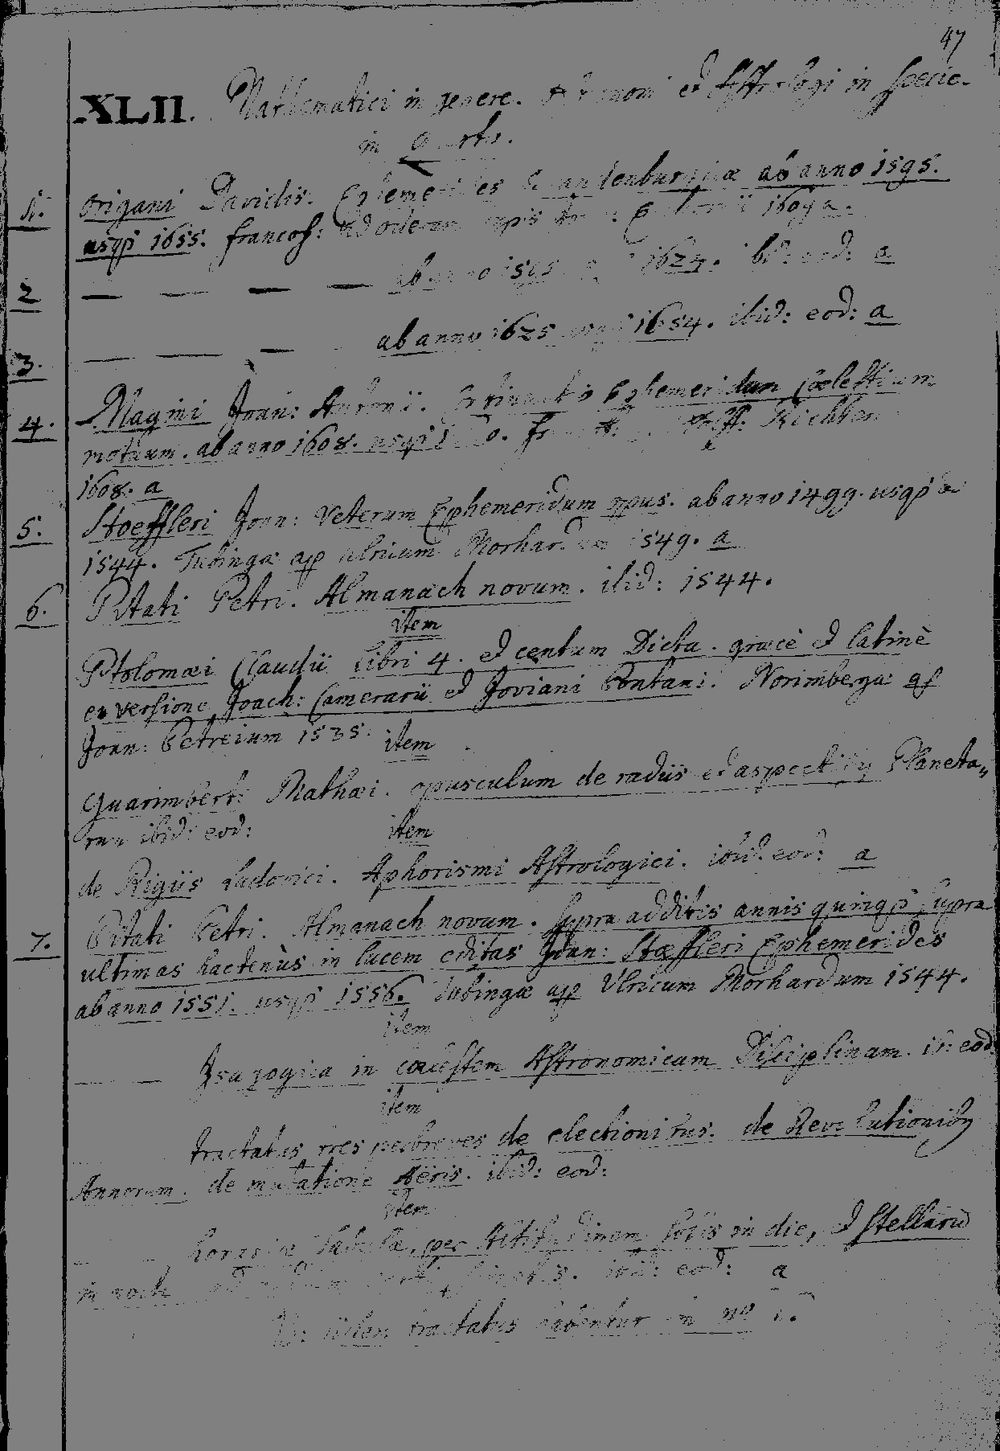 47
XLII. Mathematici in genere. et Astrologi in specie.
in
1. Origani Davidis. Ephemerides Brandenburgicæ ab anno 1595.
usqȝ 1655. francof: ad oderam 1609 a.
2 — — — — ab anno 1595 1624. ibid: eod: a
3. — — — ab anno 1625 usqȝ 1654. ibid: eod: a
4. Magini Joan: Antonii. Ephemeridum Cœlestium
motuum. ab anno 1608. usqȝ Richter
1608. a
5. Stoeffleri Joan: Veterum Ephemeridum opus. ab anno 1499. usqȝ a
1544. Tubingæ ap Ulricum Morhardum 1549. a
6. Pitati Petri. Almanach novum. ibid: 1544.
item
Ptolomæi Claudii libri 4. et centum Dicta. græcè et latinè
ex versione Joach: Camerarii et Joviani Pontani. Norimbergæ ap
Joan: Petreium 1535.
item
Guarimberti Mathæi. opusculum de radiis et aspectibus Planeta„
rum ibid: eod:
item
de Rigiis Ludovici. Aphorismi Astrologici. ibid: eod: a
7. Pitati Petri. Almanach novum. supra additis annis quinqȝ supra
ultimas hactenùs in lucem editas Joan: Stœffleri Ephemerides
ab anno 1551. usqȝ 1556. Tubingæ ap Ulricum Morhardum 1544.
item
— — Isagogica in cœlestem Astronomicam Disciplinam. ib: eod:
item
tractatus tres perbreves de electionibus. de Revolutionibȝ
Annorum. de mutatione Aëris. ibid: eod:
item
horariæ Tabulæ, per Altitudinem Solis in die, et stellarū
in nocte ibid: eod: a
tractatus habentur in nº